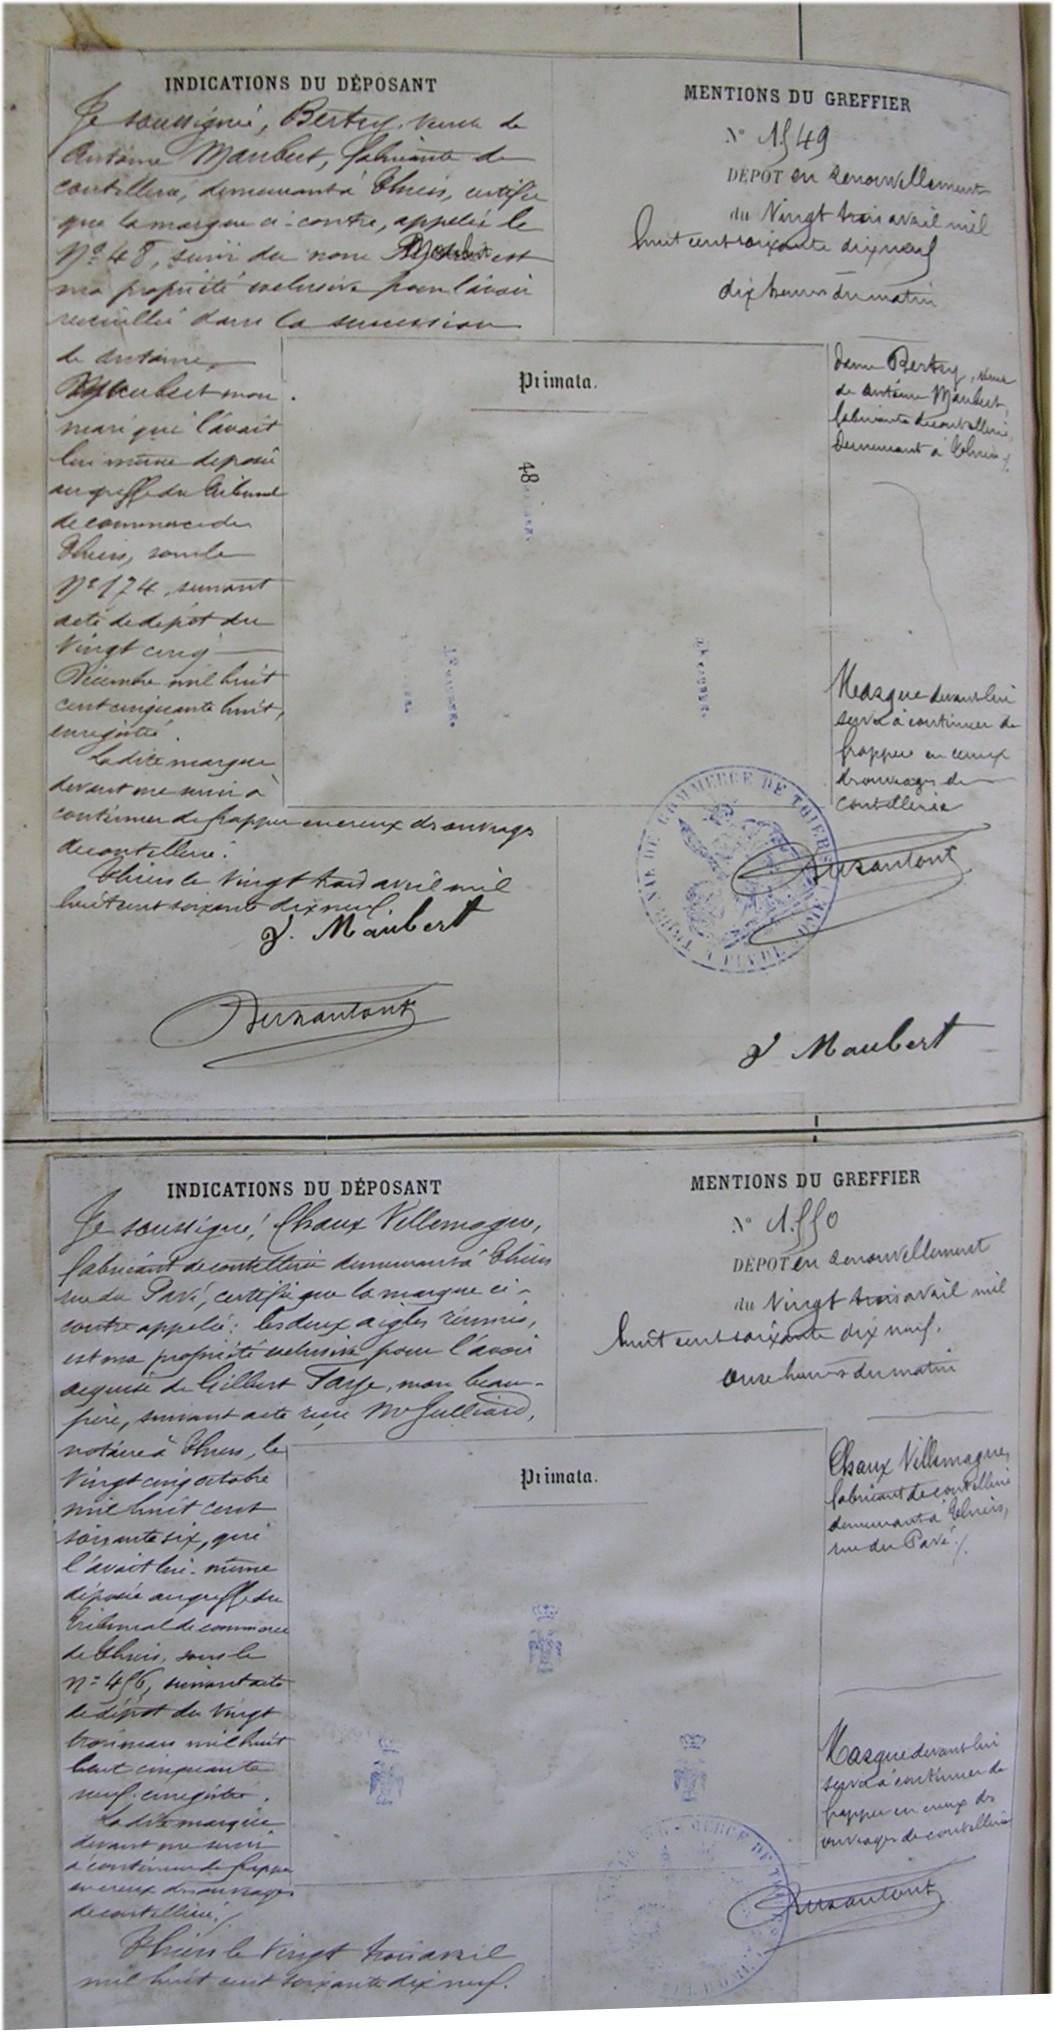 INDICATIONS DU DÉPOSANT
Je soussignée, Bertry, veuve de
Antoine Maubert, fabricante de
coutellerie, demeurant à Thiers, certifie
que la marque ci-contre, appelée le
N° 48, suivi du nom est
ma propriété exclusive pour l'avoir
recueillie dans la succession
de Antoine
Maubert mon
mari qui l'avait
lui même déposée
au greffe du Tribunal
de commerce de
Thiers, sous le
N° 174, suivant
acte de dépôt du
Vingt cinq
Décembre mil huit
cent cinquante huit,
enregistré.
La dite marque
devant me servir à
continuer de frapper en creux des ouvrages
de coutellerie.
Thiers le Vingt trois avril mil
huit cent soixante dix neuf
V. Maubert
MENTIONS DU GREFFIER
N° 1549
DÉPÔT en renouvellement
du Vingt trois avril mil
huit cent soixante dix neuf
dix heures du matin
Primata.
48
dame Bertry, veuve
de Antoine Maubert,
fabricante de coutellerie,
demeurant à Thiers
Marque devant lui
servir à continuer de
frapper en creux
des ouvrages de
coutellerie
TRIBUNAL DE COMMERCE DE THIERS
V Maubert
INDICATIONS DU DÉPOSANT
Je soussigné, Chaux Villemagne,
fabricant de coutellerie demeurant à Thiers
rue du Pavé, certifie que la marque ci-
contre appelée: les deux aigles réunis,
est ma propriété exclusive pour l'avoir
acquise de Gilbert mon beau-
père, suivant acte reçu Me Julliard,
notaire à Thiers, le
Vingt cinq octobre
mil huit cent
soixante six, qui
l'avait lui-même
déposée au greffe du
Tribunal de commerce
de Thiers, sous le
n° 456, suivant acte
de dépôt du Vingt
trois mars mil huit
cent cinquante
neuf, enregistré.
La dite marque
devant me servir
à continuer de frapper
en creux des ouvrages
de coutellerie.
Thiers le Vingt trois avril
mil huit cent soixante dix neuf.
MENTIONS DU GREFFIER
N° 1550
DÉPÔT en renouvellement
du Vingt trois avril mil
huit cent soixante dix neuf.
onze heures du matin
Primata.
Chaux Villemagne,
fabricant de coutellerie
demeurant à Thiers,
rue du Pavé
Marque devant lui
servir à continuer de
frapper en creux des
ouvrages de coutellerie